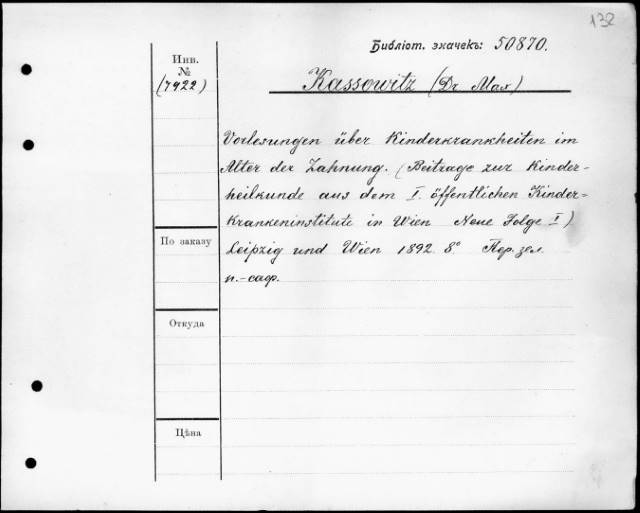 132
Библіот. значекъ: 50870.
Инв.
№
(7922)
Kassowitz (Dr Max)
Vorlesungen über Kinderkrankheiten im
Alter der Zahnung. (Beitrage zur Kinder-
heilkunde aus dem I. öffentlichen Kinder-
Krankeninstitute in Wien Neue Folge I)
Leipzig und Wien 1892. 8° Пер. зел.
п.-саф.
По заказу
Откуда
Цѣна